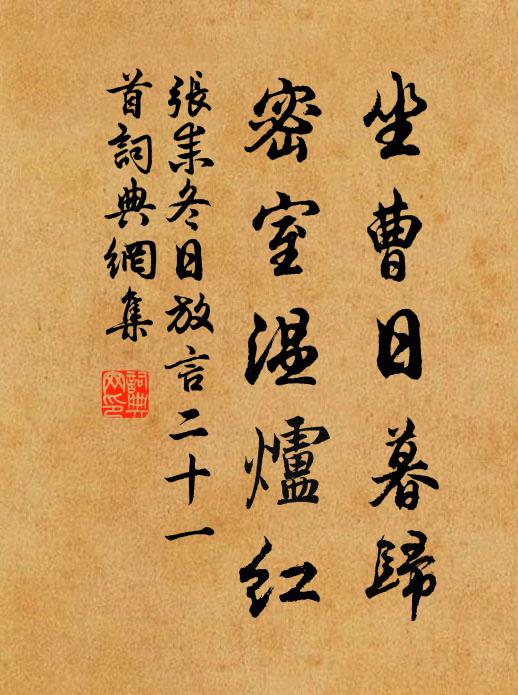 坐曹日暮歸
密室温爐紅
張耒冬日放言二十一
首詞典網集
詞典網印